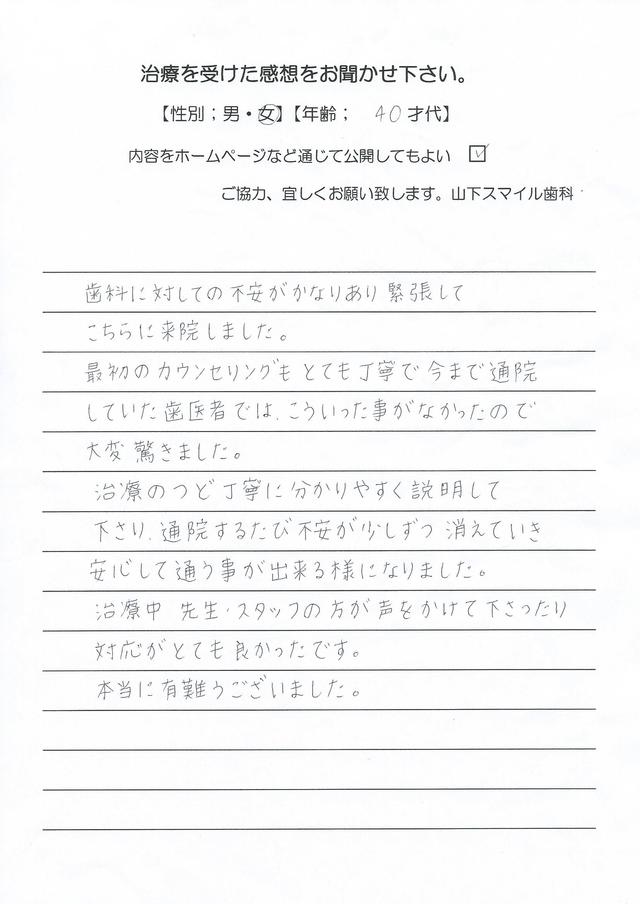 治療を受けた感想をお聞かせ下さい。
【性別；男・女】【年齢； 40才代】
内容をホームページなど通じて公開してもよい ☑
ご協力、宜しくお願い致します。山下スマイル歯科
歯科に対しての不安がかなりあり緊張して
こちらに来院しました。
最初のカウンセリングもとても丁寧で今まで通院
していた歯医者では、こういった事がなかったので
大変驚きました。
治療のつど丁寧に分かりやすく説明して
下さり、通院するたび不安が少しずつ消えていき
安心して通う事が出来る様になりました。
治療中 先生・スタッフの方が声をかけて下さったり
対応がとても良かったです。
本当に有難うございました。